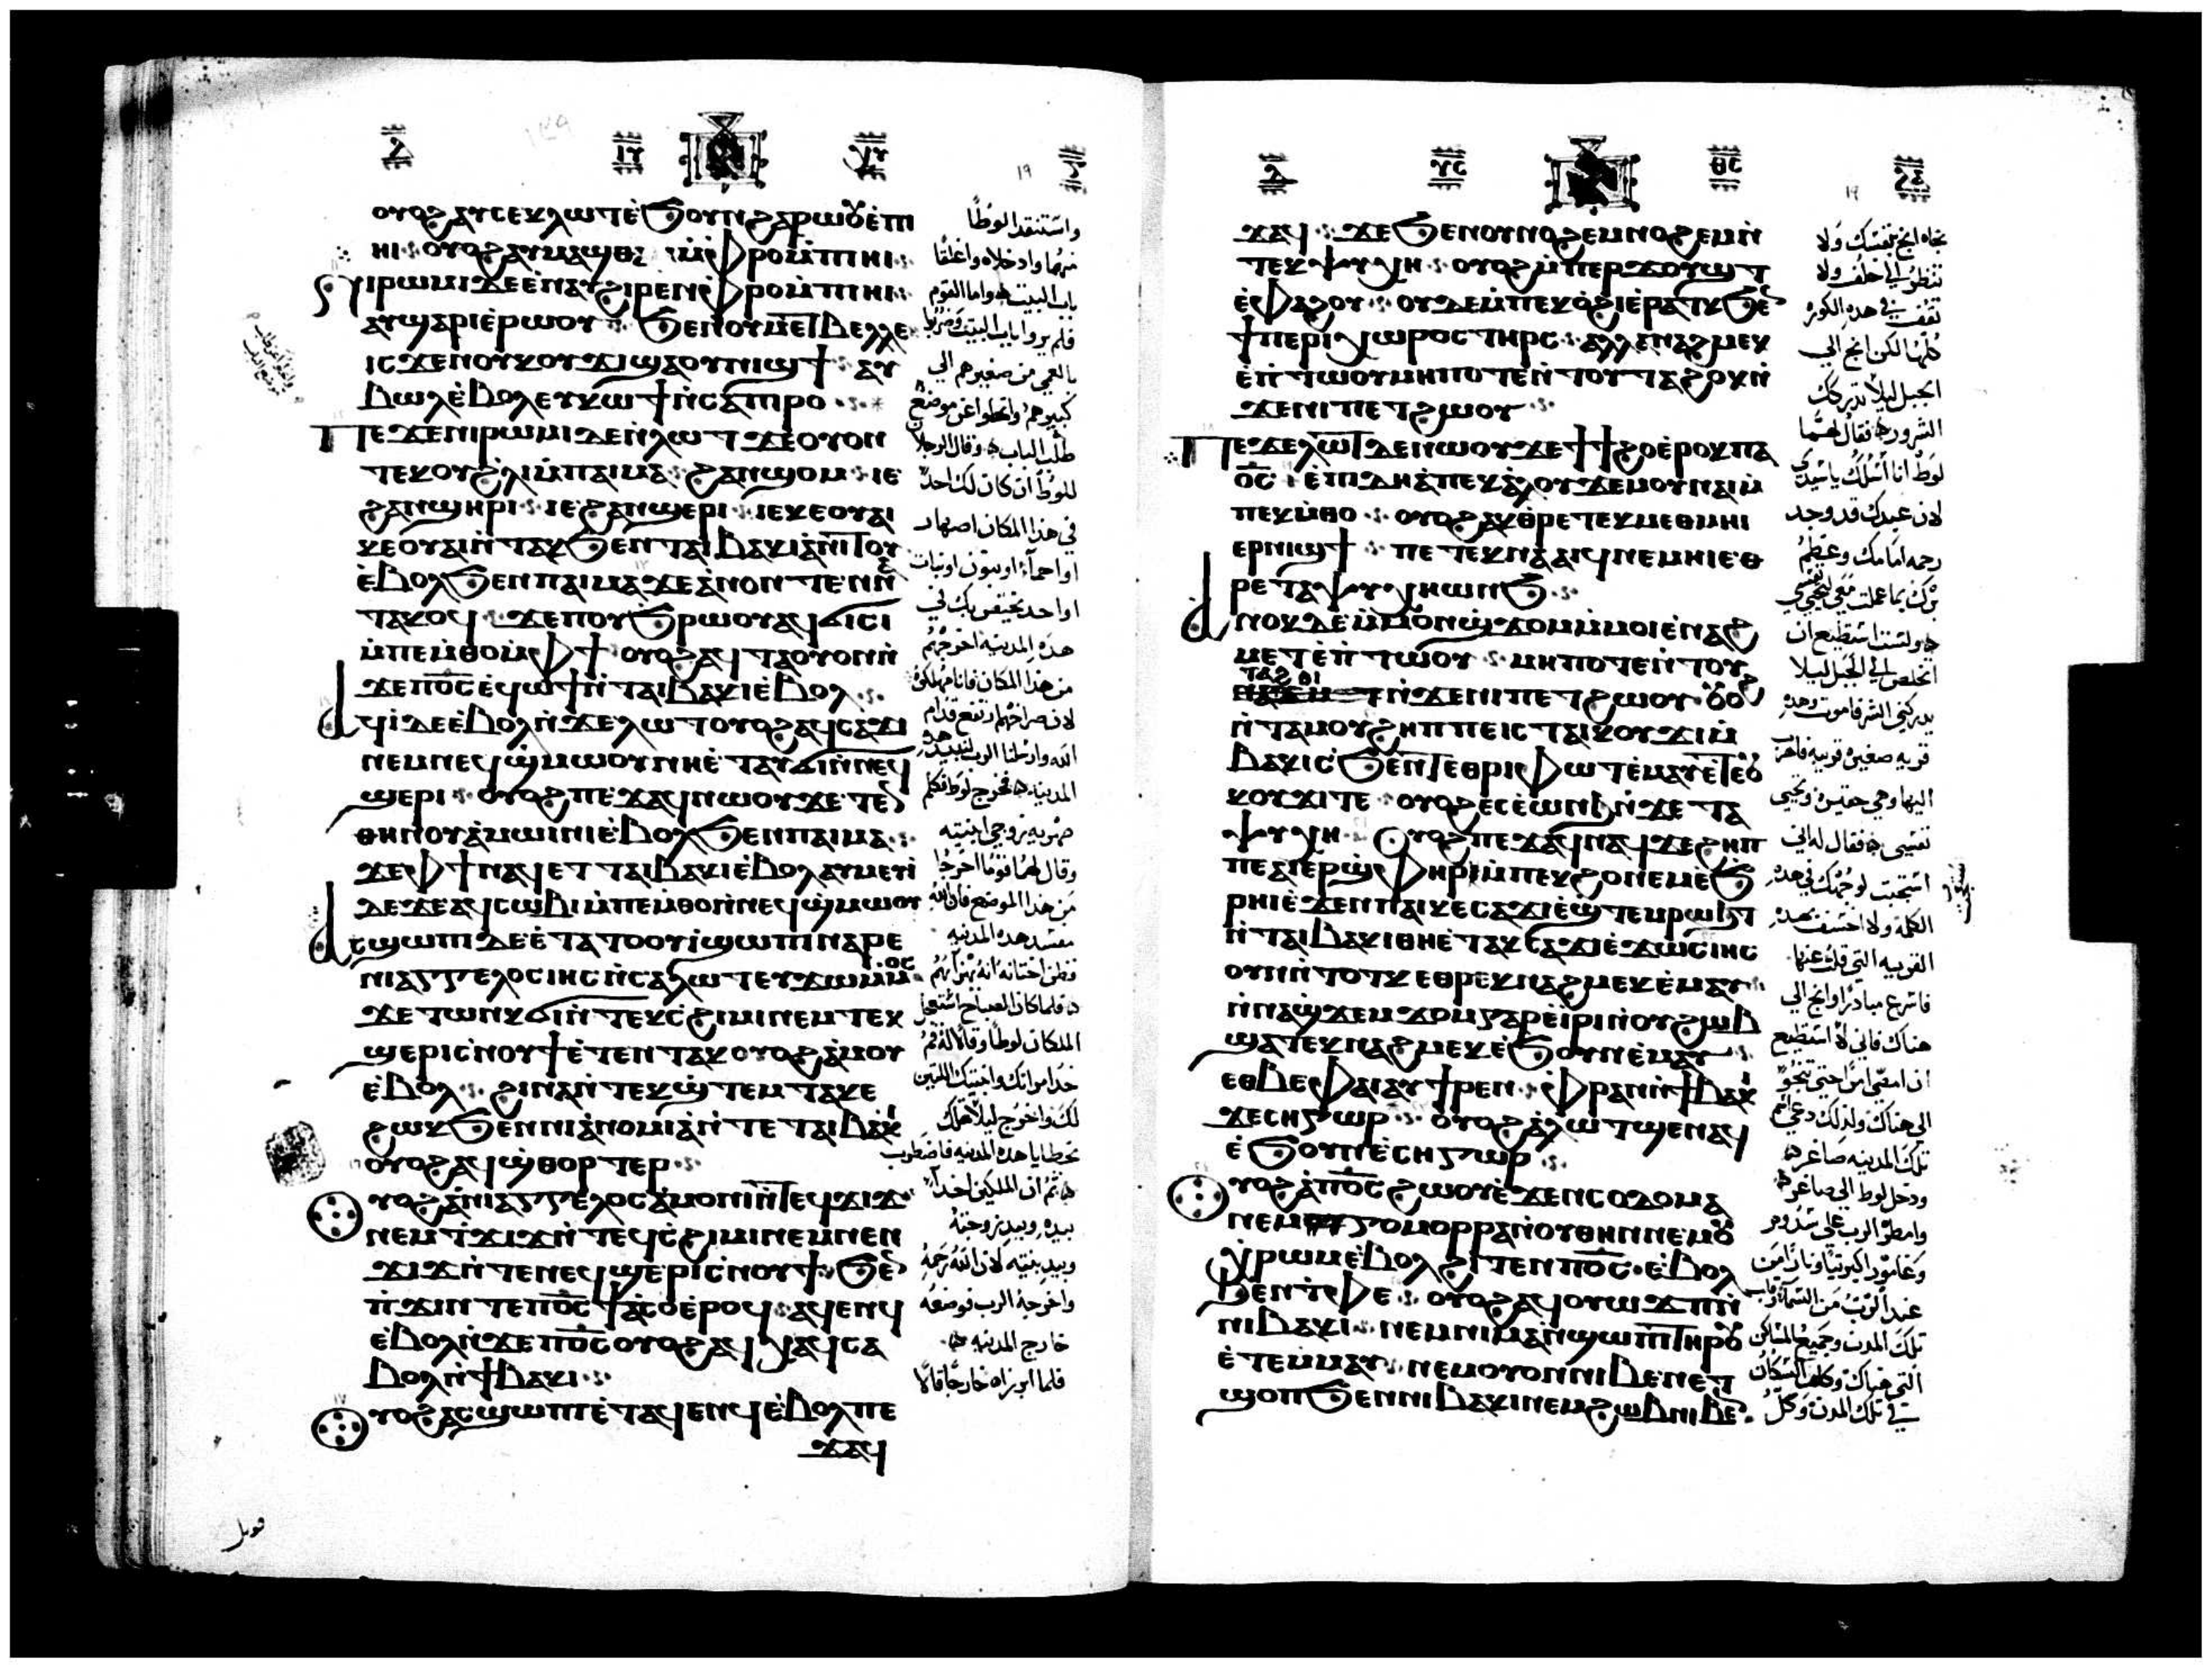 ⲟⲩⲟϩ ⲁⲩⲥⲉⲕ ⲗⲱⲧ ⲉ̀ϧⲟⲩⲛ ϩⲁⲣⲱⲟⲩ ⲉ̀ⲡⲓ
ⲏⲓ ⲟⲩⲟϩ ⲁⲩⲙⲁϣⲑ ⲙ̀ⲫⲣⲟ ⲙ̀ⲡⲓⲏⲓ
ⲛⲓⲣⲱⲙⲓ ⲇⲉ ⲉⲛⲁⲩϩⲓⲣⲉⲛ ⲫⲣⲟ ⲙ̀ⲡⲓⲏⲓ
ⲁⲩϣⲁⲣⲓ ⲉ̀ⲣⲱⲟⲩ ϧⲉⲛ ⲟⲩⲙⲉⲧⲃⲉⲗⲗⲉ
ⲓⲥϫⲉⲛ ⲟⲩⲕⲟⲩϫⲓ ϣⲁ ⲟⲩⲛⲓϣϯ ⲁⲩ
ⲃⲱⲗ ⲉ̀ⲃⲟⲗ ⲉⲩⲕⲱϯ ⲛ̀ⲥⲁ ⲡⲓⲣⲟ
ⲡⲉϫⲉ ⲛⲓⲣⲱⲙⲓ ⲇⲉ ⲛ̀ⲗⲱⲧ ϫⲉ ⲟⲩⲟⲛ
ⲧⲉⲕ ⲟⲩϩⲗⲓ ⲙ̀ⲡⲁⲓⲙⲁ ϩⲁⲛϣⲟⲙ ⲓⲉ
ϩⲁⲛϣⲏⲣⲓ ⲓⲉ ϩⲁⲛϣⲉⲣⲓ ⲓⲉ ⲕⲉⲟⲩⲁⲓ
ⲕⲉⲟⲩⲁⲓ ⲛ̀ⲧⲁⲕ ϧⲉⲛ ⲧⲁⲓⲃⲁⲕⲓ ⲁ̀ⲛⲓⲧⲟⲩ
ⲉ̀ⲃⲟⲗ ϧⲉⲛ ⲡⲁⲓⲙⲁ ϫⲉ ⲁ̀ⲛⲟⲛ ⲧⲉⲛⲛ
ⲧⲁⲕⲟϥ ϫⲉ ⲡⲟⲩϧⲣⲱⲟⲩ ⲁϥϭⲓⲥⲓ
ⲙ̀ⲡⲉⲙⲑⲟ ⲙ̀ⲫϯ ⲟⲩⲟϩ ⲁϥⲧⲁⲟⲩⲟⲛ ⲛ̀
ϫⲉ ⲡⲟ̅ⲥ̅ ⲉ̀ϥⲱϯ ⲛ̀ⲧⲁⲓⲃⲁⲕⲓ ⲉ̀ⲃⲟⲗ
ⲁϥⲓ̀ ⲇⲉ ⲉ̀ⲃⲟⲗ ⲛ̀ϫⲉ ⲗⲱⲧ ⲟⲩⲟϩ ⲁϥⲥⲁϫⲓ
ⲛⲉⲙ ⲛⲉϥϣⲙⲱⲟⲩ ⲛⲏ ⲉ̀ⲧⲁⲩϭⲓ ⲛ̀ⲛⲉϥ
ϣⲉⲣⲓ ⲟⲩⲟϩ ⲡⲉϫⲁϥ ⲛⲱⲟⲩ ϫⲉ ⲧⲉⲛ
ⲑⲏⲛⲟⲩ ⲁ̀ⲙⲱⲓⲛⲓ ⲉ̀ⲃⲟⲗ ϧⲉⲛ ⲡⲁⲓⲙⲁ
ϫⲉ ⲫϯ ⲛⲁϥⲉⲧ ⲧⲁⲓⲃⲁⲕⲓ ⲉ̀ⲃⲟⲗ ⲁⲩⲙⲉⲩⲓ̀
ⲇⲉ ϫⲉ ⲁϥⲥⲱⲃⲓ ⲙ̀ⲡⲉⲙⲑⲟ ⲛ̀ⲛⲉϥϣⲙⲱⲟⲩ
ⲁⲥϣⲱⲡⲓ ⲇⲉ ⲉ̀ⲧⲁ ⲧⲟⲟⲩⲓ̀ ϣⲱⲡⲓ ⲛⲁⲣⲉ
ⲛⲓⲁⲅⲅⲉⲗⲟⲥ ⲓⲏⲥ ⲛ̀ⲥⲁ ⲗⲱⲧ ⲉⲩϫⲱ ⲙ̀ⲙⲟⲥ
ϫⲉ ⲧⲱⲛⲕ ϭⲓ ⲛ̀ⲧⲉⲕⲥϩⲓⲙⲓ ⲛⲉⲙ ⲧⲉⲕ
ϣⲉⲣⲓ ⲥ̀ⲛⲟⲩϯ ⲉ̀ⲧⲉⲛⲧⲁⲕ ⲟⲩⲟϩ ⲁ̀ⲙⲟⲩ
ⲉ̀ⲃⲟⲗ ϩⲓⲛⲁ ⲛ̀ⲧⲉⲕϣⲧⲉⲙⲧⲁⲕⲉ
ϩⲱⲕ ϧⲉⲛ ⲛⲓⲁ̀ⲛⲟⲙⲓⲁ̀ ⲛ̀ⲧⲉ ⲧⲁⲓⲃⲁⲕⲓ
ⲟⲩⲟϩ ⲁϥϣⲑⲟⲣⲧⲉⲣ
ⲟⲩⲟϩ ⲁ̀ ⲛⲓⲁⲅⲅⲉⲗⲟⲥ ⲁ̀ⲙⲟⲛⲓ ⲛ̀ⲧⲉϥϫⲓϫ
ⲛⲉⲙ ⲧ̀ϫⲓϫ ⲛ̀ⲧⲉϥⲥϩⲓⲙⲓ ⲛⲉⲙ ⲛⲉⲛ
ϫⲓϫ ⲛ̀ⲧⲉ ⲛⲉϥϣⲉⲣⲓ ⲥ̀ⲛⲟⲩϯ ϧⲉⲛ
ⲡ̀ϫⲓⲛⲧⲉ ⲡⲟ̅ⲥ̅ ϯⲁ̀ⲥⲟ ⲉ̀ⲣⲟϥ ⲁϥⲉⲛϥ
ⲉ̀ⲃⲟⲗ ⲛ̀ϫⲉ ⲡⲟ̅ⲥ̅ ⲟⲩⲟϩ ⲁϥⲭⲁϥ ⲥⲁ
ⲃⲟⲗ ⲛ̀ϯⲃⲁⲕⲓ
ⲟⲩⲟϩ ⲁⲥϣⲱⲡⲓ ⲉ̀ⲧⲁϥⲉⲛϥ ⲉ̀ⲃⲟⲗ ⲡⲉ
ϫⲁϥ
واستنقدا لوطًا
منهما وادخلاه واغلقا
باب البيت واما القوم
فلم يروا باب البيت وضربا
بالعمي من صغيرهم الي
كبيرهم وانحلوا عن موضع
طلب الباب وقال الرجلا
للوط ان كان لك احد
في هذا المكان اصهار
او احماء او بنون او بنات
هذه المدينه اخرجهم
من هذا المكان فانا مهلكوه
لان صراخهم ارتفع قدام
الله وارسلنا الرب لنبيد هذه
المدينه فخرج لوط فكلم
صهريه زوجي ابنتيه
وقال لهما قوما اخرجا
من هذا الموضع فان الله
مفسد هذه المدينه
فلما كان الصباح استعجل
الملكان لوطا وقالا له قم
خد امراتك وابنتيك اللتين
لك واخرج ليلا تهلك
بخطايا هذه المدينه فاضطرب
ثم ان الملكين اخدا
بيده وبيد زوجته
وبيد بنتيه لان الله رحمه
واخرجه الرب فوضعه
خارج المدينه
فلما ابرزاه خارجا قالا
ϫⲁϥ ϫⲉ ϧⲉⲛ ⲟⲩⲛⲟϩⲉⲙ ⲛⲟϩⲉⲙ ⲛ̀
ⲧⲉⲕⲯⲩⲭⲏ ⲟⲩⲟϩ ⲙ̀ⲡⲉⲣϫⲟⲩϣⲧ
ⲉ̀ⲫⲁϩⲟⲩ ⲟⲩⲇⲉ ⲙ̀ⲡⲉⲕⲟ̀ϩⲓ ⲉ̀ⲣⲁⲧⲕ ϧⲉⲛ
ϯⲡⲉⲣⲓⲭⲱⲣⲟⲥ ⲧⲏⲣⲥ ⲁⲗⲗⲁ ⲛⲁϩⲙⲉⲕ
ⲉ̀ⲡ̀ⲧⲱⲟⲩ ⲙⲏⲡⲟⲧⲉ ⲛ̀ⲧⲟⲩⲧⲁϩⲟⲕ ⲛ̀
ϫⲉ ⲛⲓⲡⲉⲧϩⲱⲟⲩ
ⲡⲉϫⲉ ⲗⲱⲧ ⲇⲉ ⲛⲱⲟⲩ ϫⲉ ϯϯϩⲟ ⲉ̀ⲣⲟⲕ ⲡⲁ
ⲟ̅ⲥ̅ ⲉ̀ⲡⲓⲇⲏ ⲁ̀ ⲡⲉⲕⲁ̀ⲗⲟⲩ ϫⲉⲙ ⲟⲩⲛⲁⲓ ⲙ̀
ⲡⲉⲕⲙ̀ⲑⲟ ⲟⲩⲟϩ ⲁⲕⲑⲣⲉ ⲧⲉⲕⲙⲉⲑⲙⲏⲓ
ⲉⲣⲛⲓϣϯ ⲡⲉⲧⲉⲕⲛⲁⲁⲓϥ ⲛⲉⲙⲏⲓ ⲉ̀ⲑ
ⲣⲉ ⲧⲁⲯⲩⲭⲏ ⲱⲛϧ
ⲁⲛⲟⲕ ⲇⲉ ⲙ̀ⲙⲟⲛ ϣϫⲟⲙ ⲙ̀ⲙⲟⲓ ⲉ̀ⲛⲁϩ
ⲙⲉⲧ ⲉ̀ⲡ̀ⲧⲱⲟⲩ ⲙⲏⲡⲟⲧⲉ ⲛ̀ⲧⲟⲩ
ⲧⲁϩⲟⲓ
ⲛ̀ϫⲉ ⲛⲓⲡⲉⲧϩⲱⲟⲩ ⲟⲩⲟϩ
ⲛ̀ⲧⲁⲙⲟⲩ ϩⲏⲡⲡⲉ ⲓⲥ ⲧⲁⲓⲕⲟⲩϫⲓ ⲙ̀
ⲃⲁⲕⲓ ⲥ̀ϧⲉⲛⲧ ⲉ̀ⲑⲣⲓⲫⲱⲧ ⲉ̀ⲙⲁⲩ
ⲕⲟⲩϫⲓ ⲧⲉ ⲟⲩⲟϩ ⲉⲥⲉ̀ⲱⲛϧ ⲛ̀ϫⲉ ⲧⲁ
ⲯⲩⲭⲏ ⲟⲩⲟϩ ⲡⲉϫⲁϥ ⲛⲁϥ ϫⲉ ϩⲏⲡ
ⲡⲉ ⲁⲓⲉⲣϣⲫⲏⲣⲓ ⲙ̀ⲡⲉⲕϩⲟ ⲛⲉⲙ ⲉϧ
ⲣⲏⲓ ⲉ̀ϫⲉⲛ ⲡⲁⲓⲕⲉⲥⲁϫⲓ ⲉ̀ϣⲧⲉⲙⲣⲱϧⲧ
ⲛ̀ⲧⲁⲓⲃⲁⲕⲓ ⲑⲏ ⲉ̀ⲧⲁⲕⲥⲁϫⲓ ⲉ̀ϫⲱⲥ ⲓⲏⲥ
ⲟⲩⲛ ⲛ̀ⲧⲟⲧⲕ ⲉⲑⲣⲉⲕⲛⲁϩⲙⲉⲕ ⲉ̀ⲙⲁⲩ
ⲛ̀ⲛⲁϣϫⲉⲙϫⲟⲙ ⲅⲁⲣ ⲉ̀ⲓⲣⲓ ⲛ̀ⲟⲩϩⲱⲃ
ϣⲁⲧⲉⲕⲛⲁϩⲙⲉⲕ ⲉ̀ϧⲟⲩⲛ ⲉ̀ⲙⲁⲩ
ⲉⲑⲃⲉ ⲫⲁⲓ ⲁⲩϯⲣⲉⲛ ⲫⲣⲁⲛ ⲛ̀ϯⲃⲁⲕⲓ
ϫⲉ ⲥⲏⲅⲱⲣ ⲟⲩⲟϩ ⲁ̀ ⲗⲱⲧ ϣⲉⲛⲁϥ
ⲉ̀ϧⲟⲩⲛ ⲉ̀ⲥⲏⲅⲱⲣ
ⲟⲩⲟϩ ⲁ̀ ⲡⲟ̅ⲥ̅ ϩⲱⲟⲩ ⲉ̀ϫⲉⲛ ⲥⲟⲇⲟⲙⲁ
ⲛⲉⲙ ⲅⲟⲙⲟⲣⲣⲁ ⲛ̀ⲟⲩⲑⲏⲛ ⲛⲉⲙ ⲟⲩ
ⲭⲣⲱⲙ ⲉ̀ⲃⲟⲗ ϩⲓⲧⲉⲛ ⲡⲟ̅ⲥ̅ ⲉ̀ⲃⲟⲗ
ϧⲉⲛ ⲧ̀ⲫⲉ ⲟⲩⲟϩ ⲁϥⲟⲩⲱϫⲡ ⲛ̀
ⲛⲓⲃⲁⲕⲓ ⲛⲉⲙ ⲛⲓⲙⲁⲛ̀ϣⲱⲡⲓ ⲧⲏⲣⲟⲩ
ⲉ̀ⲧⲉⲙ̀ⲙⲁⲩ ⲛⲉⲙ ⲟⲩⲟⲛ ⲛⲓⲃⲉⲛ ⲉⲧ
ϣⲟⲡ ϧⲉⲛ ⲛⲓⲃⲁⲕⲓ ⲛⲉⲙ ϩⲱⲃ ⲛⲓⲃⲉⲛ
نجاه انج بنفسك ولا
تنظر الي خلف ولا
تقف في هذه الكوره
كلها لكن انج الي
الجبل ليلا تدركك
الشرور فقال لهما
لوط انا اسلك يا سيدي
لان عبدك قد وجد
رحمه امامك وعظم
ولست استطيع ان
اتخلص الي الجبل ليلا
يدركني الشر فاموت وهذه
قريه صغيره قريبه
اليها وهي حقيره وتحيي
نفسي فقال له اني
استحيت لوجهك في هذه
الكلمه ولا اخسف هذه
القريه التي قلت عنها
فاسرع مبادرا وانج الي
هناك فاني لا استطيع
ان امضي امرا حتي تنجو
الي هناك ولذلك دعي اسم
تلك المدينه صاغر
ودخل لوط الي صاغر
وامطر الرب علي سدوم
وغامور اكبريتا ونارا من
عند الرب من السما وقلب
تلك المدن وجميع المساكن
التي هناك وكل السكان
في تلك المدن وكل